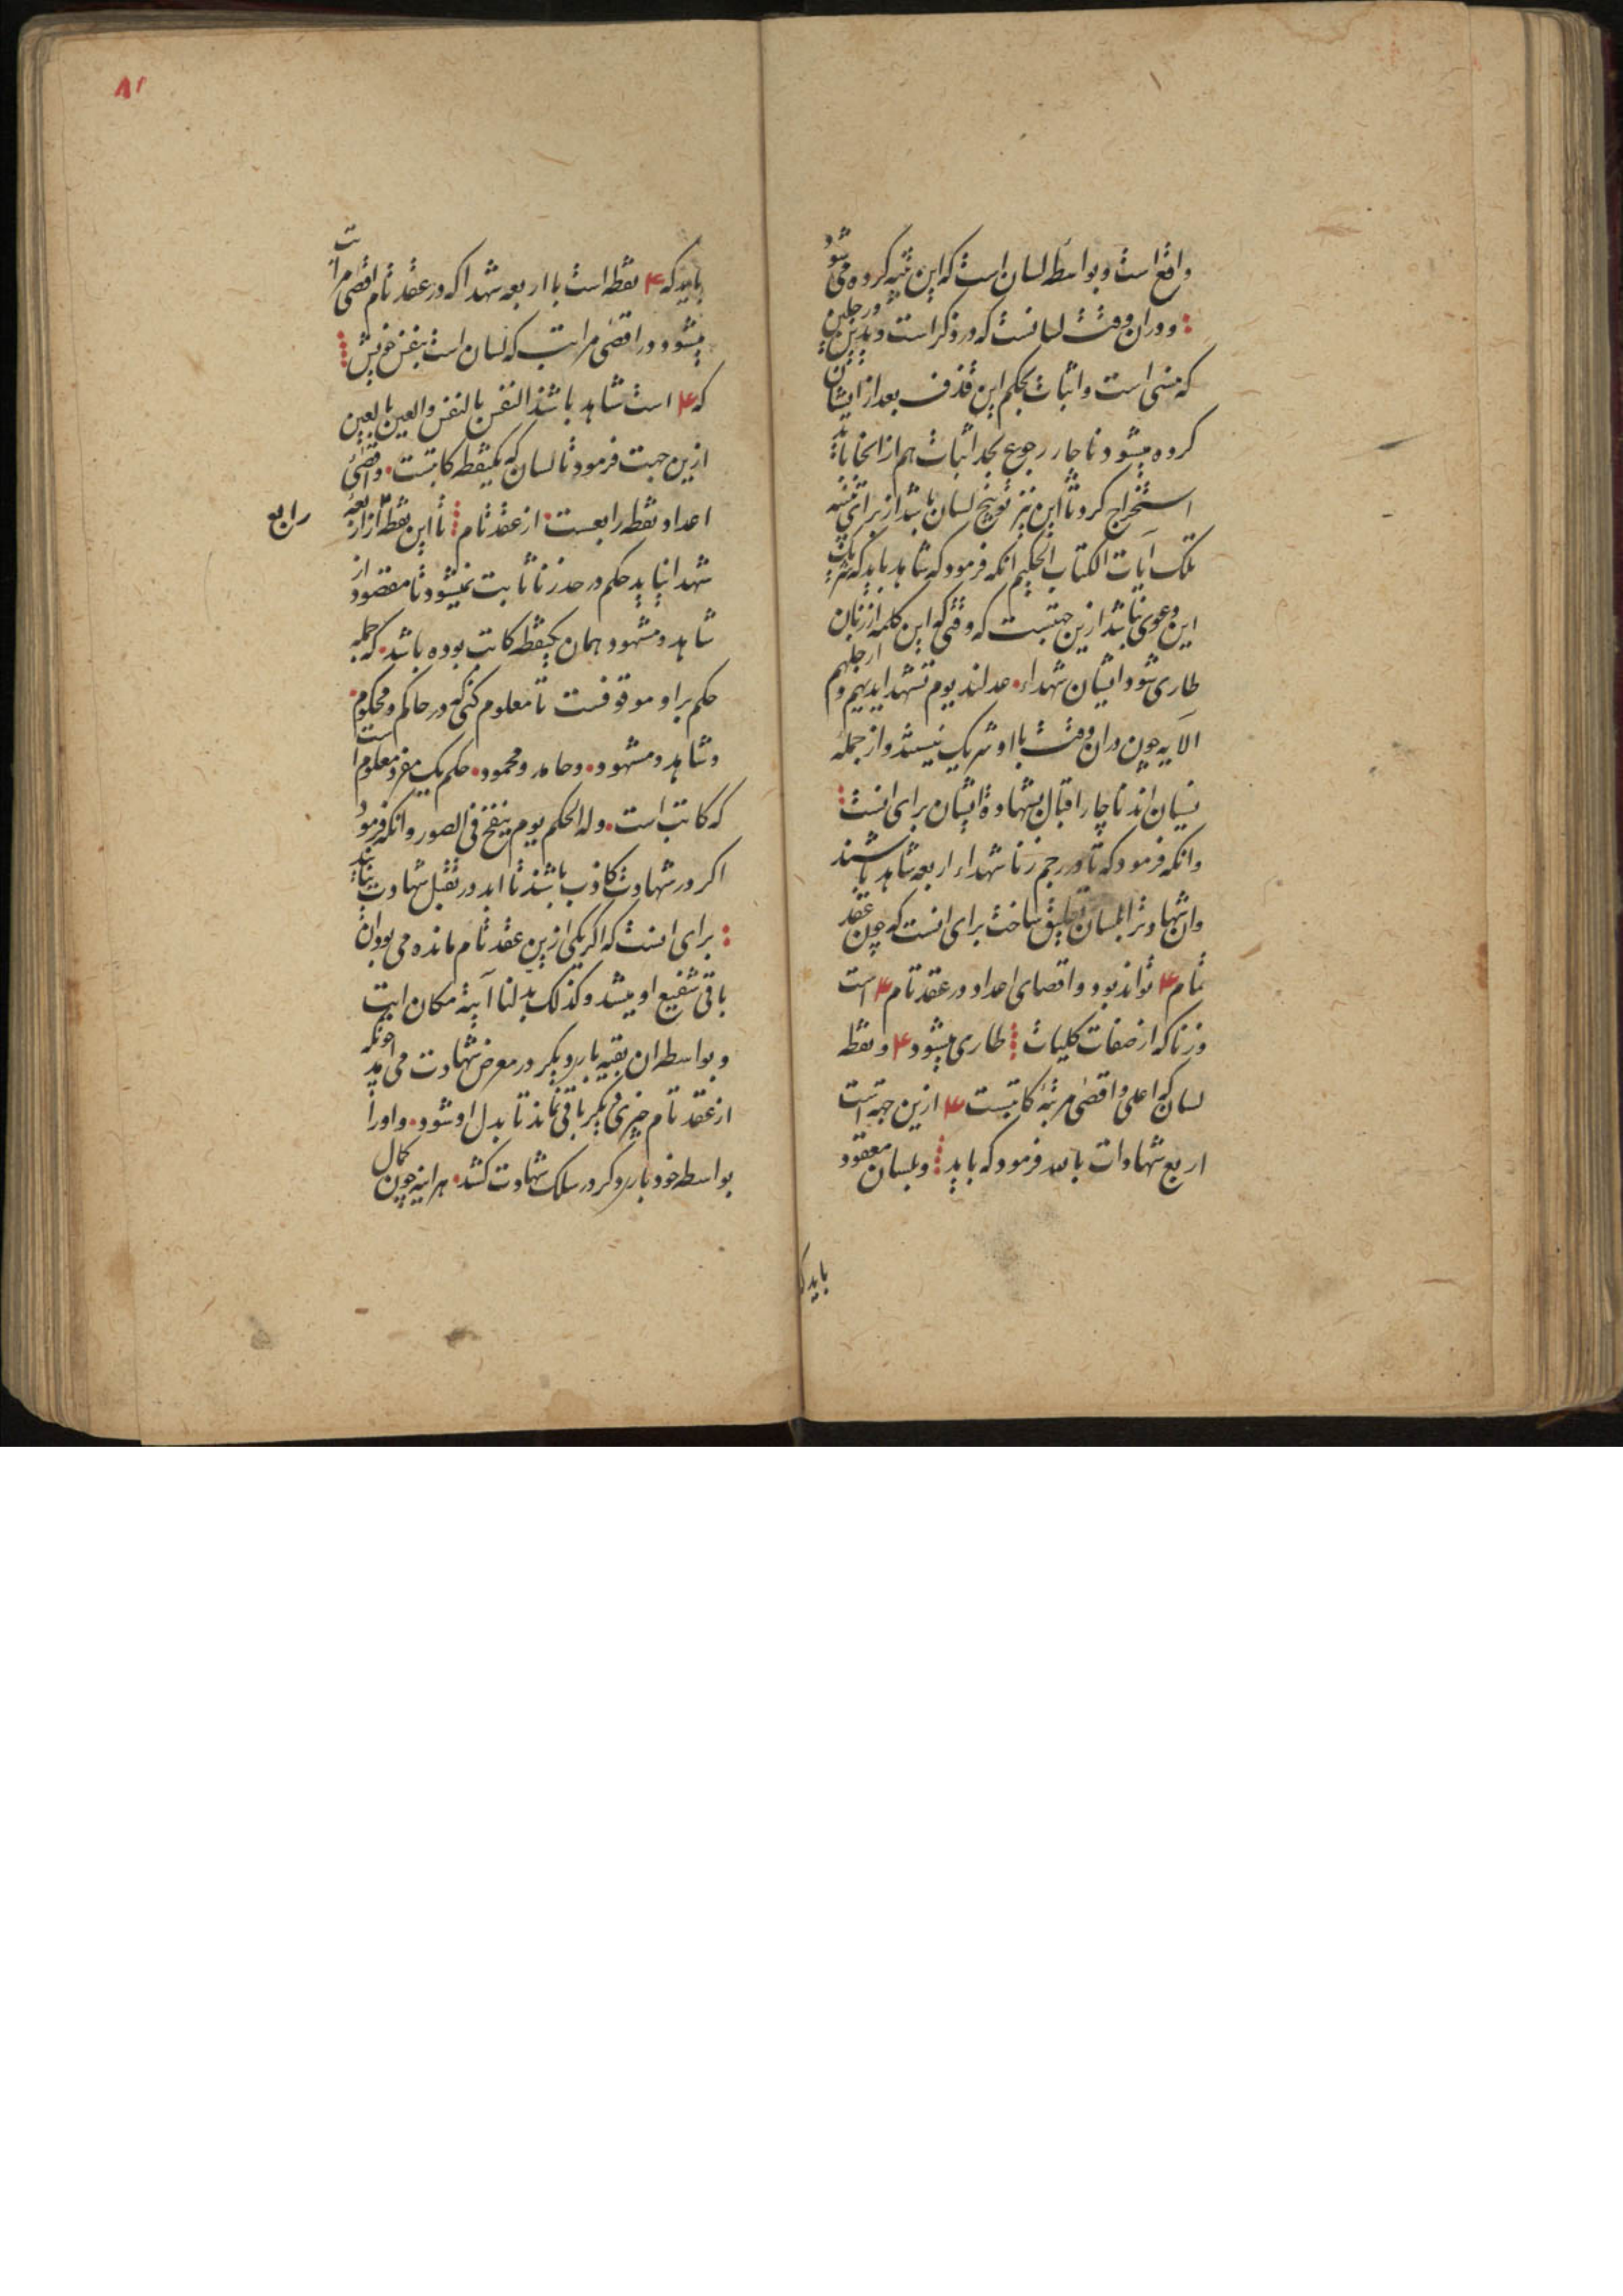 واقع است و بواسطه لسان است که این تنبیه کرده می شود
و در آن وقت لسانست که در ذکر است و یدین و رجلین
که منهی است و اثبات بحکم این قذف بعد از ایشان
کرده میشود ناچار رجوع بحد اثبات هم از انجا باید
استخراج کرد تا این نیز توبیخ لسان باشد از برای
تلک آیات الکتاب الحکیم انکه فرمود که شاهد باید که شریک
این دعوی نباشد ازین جهتست که وقتی که این کلمه از زبان
طاری شود ایشان شهداء عدلند یوم تشهد ایدیهم و ارجلهم
الآیه چون در ان وقت با او شریک نیستند و از جمله
نسیان اند ناچار اقبال بشهادة ایشان برای انست
وانکه فرمود که تا در رجم زنا شهداء اربعه شاهد باشند
وان شهادت را بلسان تعلیق ساخت برای انست که چون عقد
تمام ۴ تواند بود و اقصای اعداد در عقد تام ۴ است
وزنا که از صفات کلیات طاری میشود ۴ و نقطه
لسان که اعلی و اقصی مرتبهٔ کاتبست ۴ ازین جهة است
اربع شهادات بالله فرمود که باید و بلسان معقود
باید که
۸۲
باید که ۴ نقطه است با اربعه شهدا که در عقد تام اقصی مراتب
میشود و در اقصی مراتب که لسان است بنفس خویش
که ۴ است شاهد باشد النفس بالنفس والعین بالعین
ازین جهت فرمود تا لسان که یکنقطه کاتبست واقصی
اعداد نقطه رابعست از عقد تام تا این نقطه از اربعه
رابع
شهدا نیاید حکم در حد زنا ثابت نمیشود تا مقصود از
شاهد و مشهود همان یکنقطه کاتب بوده باشد که جمله
حکم بر او موقوفست تا معلوم کنی که در حاکم و محکوم
و شاهد و مشهود وحامد ومحمود حکم یک مفرد معلوم است
که کاتب است وله الحکم یوم ینفخ فی الصور وانکه فرمود
اکر در شهادت کاذب باشند تا ابد در تقبل شهادت نیایند
برای انست که اکر یکی ازین عقد تام مانده می بود ان
باقی شفیع او میشد وکذلک بدلنا آیة مکان آیت
و بواسطه ان بقیه بار دیکر در معرض شهادت می امد چونکه
از عقد تام چیزی دیکر باقی نماند تا بدل او شود و او را
بواسطه خود بار دکر در سلک شهادت کشد هر اینه چون کمال